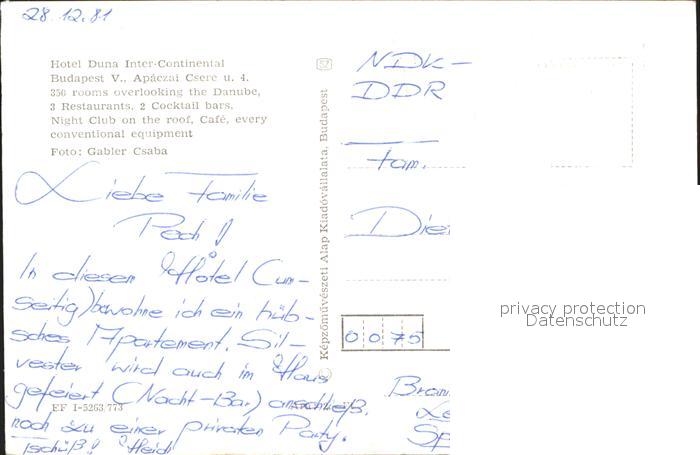 28.12.81
Hotel Duna Inter-Continental
Budapest V., Apáczai Csere u. 4.
356 rooms overlooking the Danube,
3 Restaurants, 2 Cocktail bars,
Night Club on the roof, Café, every
conventional equipment
Foto: Gabler Csaba
Liebe Familie
Pech!
In diesem Hotel (um-
seitig) bewohne ich ein hüb-
sches Apartement. Sil-
vester wird auch im Haus
gefeiert (Nacht-Bar) anschließ.
noch zu einer privaten Party.
Tschüß! Heidi
EF I-5263/773
Képzőművészeti Alap Kiadóvállalata, Budapest
NDK-
DDR
Fam.
0075
privacy protection
Datenschutz